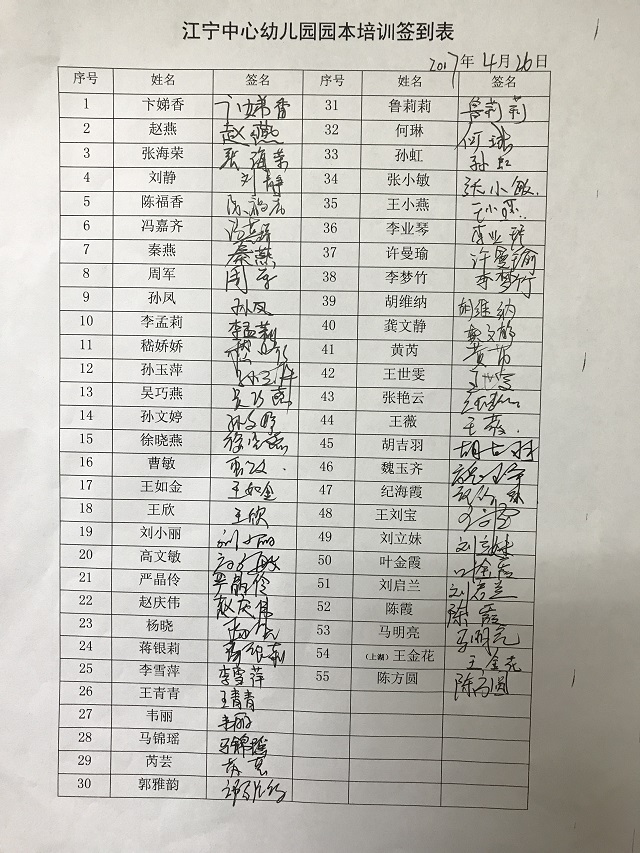 江宁中心幼儿园园本培训签到表
2017年4月26日
序号 姓名 签名 序号 姓名 签名
1 卞娣香 卞娣香 31 鲁莉莉 鲁莉莉
2 赵燕 赵燕 32 何琳 何琳
3 张海荣 张海荣 33 孙虹 孙虹
4 刘静 刘静 34 张小敏 张小敏.
5 陈福香 35 王小燕 王小燕
6 冯嘉齐 36 李业琴 李业琴
7 秦燕 秦燕 37 许曼瑜 许曼瑜
8 周军 周军 38 李梦竹 李梦竹
9 孙凤 孙凤 39 胡维纳 胡维纳
10 李孟莉 李孟莉 40 龚文静
11 嵇娇娇 41 黄芮 黄芮
12 孙玉萍 42 王世雯
13 吴巧燕 吴巧燕 43 张艳云
14 孙文婷 孙文婷 44 王薇 王薇.
15 徐晓燕 45 胡吉羽 胡吉羽
16 曹敏 46 魏玉齐
17 王如金 王如金 47 纪海霞
18 王欣 王欣 48 王刘宝
19 刘小丽 刘小丽 49 刘立妹 刘立妹
20 高文敏 50 叶金霞
21 严晶伶 严晶伶 51 刘启兰
22 赵庆伟 赵庆伟 52 陈霞 陈霞
23 杨晓 53 马明亮 马明亮
24 蒋银莉 54 (上湖)王金花 王金花
25 李雪萍 李雪萍 55 陈方圆 陈方圆
26 王青青 王青青
27 韦丽 韦丽
28 马锦瑶 马锦瑶
29 芮芸
30 郭雅韵